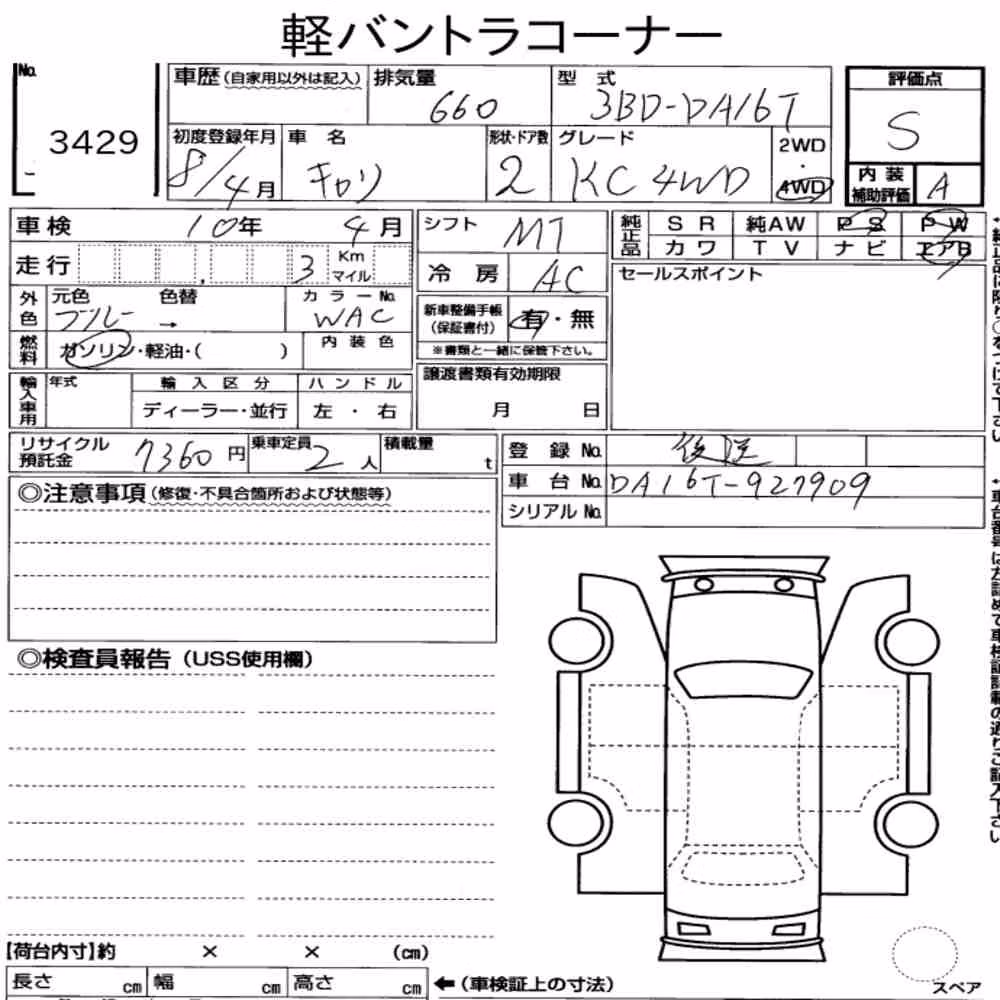 軽バントラコーナー
No. 3429
車歴(自家用以外は記入) 排気量 660 型式 3BD-DA16T 評価点 S
初度登録年月 8/4月 車名 キャリ 形状・ドア数 2 グレード KC 4WD 2WD・4WD 内装補助評価 A
車検 10年 4月 シフト MT 純正品 SR 純AW PS PW
カワ TV ナビ エアB
走行 3 Km マイル 冷房 AC セールスポイント
外色 元色 ブルー 色替 → カラーNo. WAC 新車整備手帳(保証書付) 有・無
※書類と一緒に保管下さい。
燃料 ガソリン・軽油・( ) 内装色
譲渡書類有効期限 月 日
輸入車用 年式 輸入区分 ハンドル
ディーラー・並行 左・右
リサイクル預託金 7360円 乗車定員 2人 積載量 t 登録No. 後送
車台No. DA16T-927909
シリアルNo.
◎注意事項(修復・不具合箇所および状態等)
◎検査員報告(USS使用欄)
【荷台内寸】約 × × (cm)
長さ cm 幅 cm 高さ cm ←(車検証上の寸法)
スペア